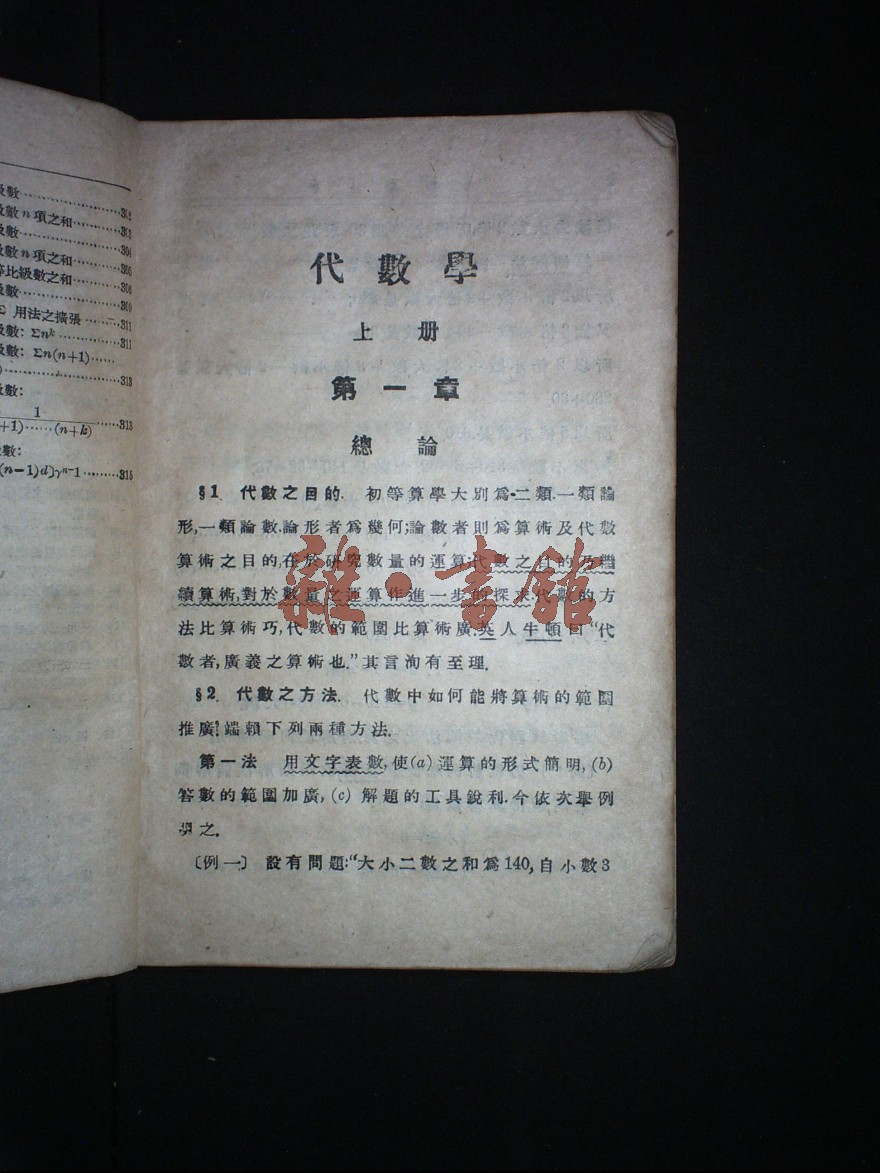 級數……302
級數n項之和……303
級數……304
級數n項之和……305
等比級數之和……308
級數……309
用法之擴張……311
級數：Σnᵏ……311
級數：Σn(n+1)……
)……313
數：
1
+1)……(n+k)……313
數：
(n-1)d]γⁿ⁻¹……315
代數學
上册
第一章
總論
§1. 代數之目的. 初等算學大別爲二類.一類論
形,一類論數.論形者爲幾何;論數者則爲算術及代數
算術之目的,在於研究數量的運算;代數之目的乃繼
續算術,對於數量之運算作進一步的探求.代數的方
法比算術巧,代數的範圍比算術廣.英人牛頓曰“代
數者,廣義之算術也.”其言洵有至理.
§2. 代數之方法. 代數中如何能將算術的範圍
推廣?端賴下列兩種方法.
第一法 用文字表數,使(a)運算的形式簡明,(b)
答數的範圍加廣,(c)解題的工具銳利.今依次舉例
明之.
〔例一〕 設有問題:“大小二數之和爲140,自小數3
雜·書館